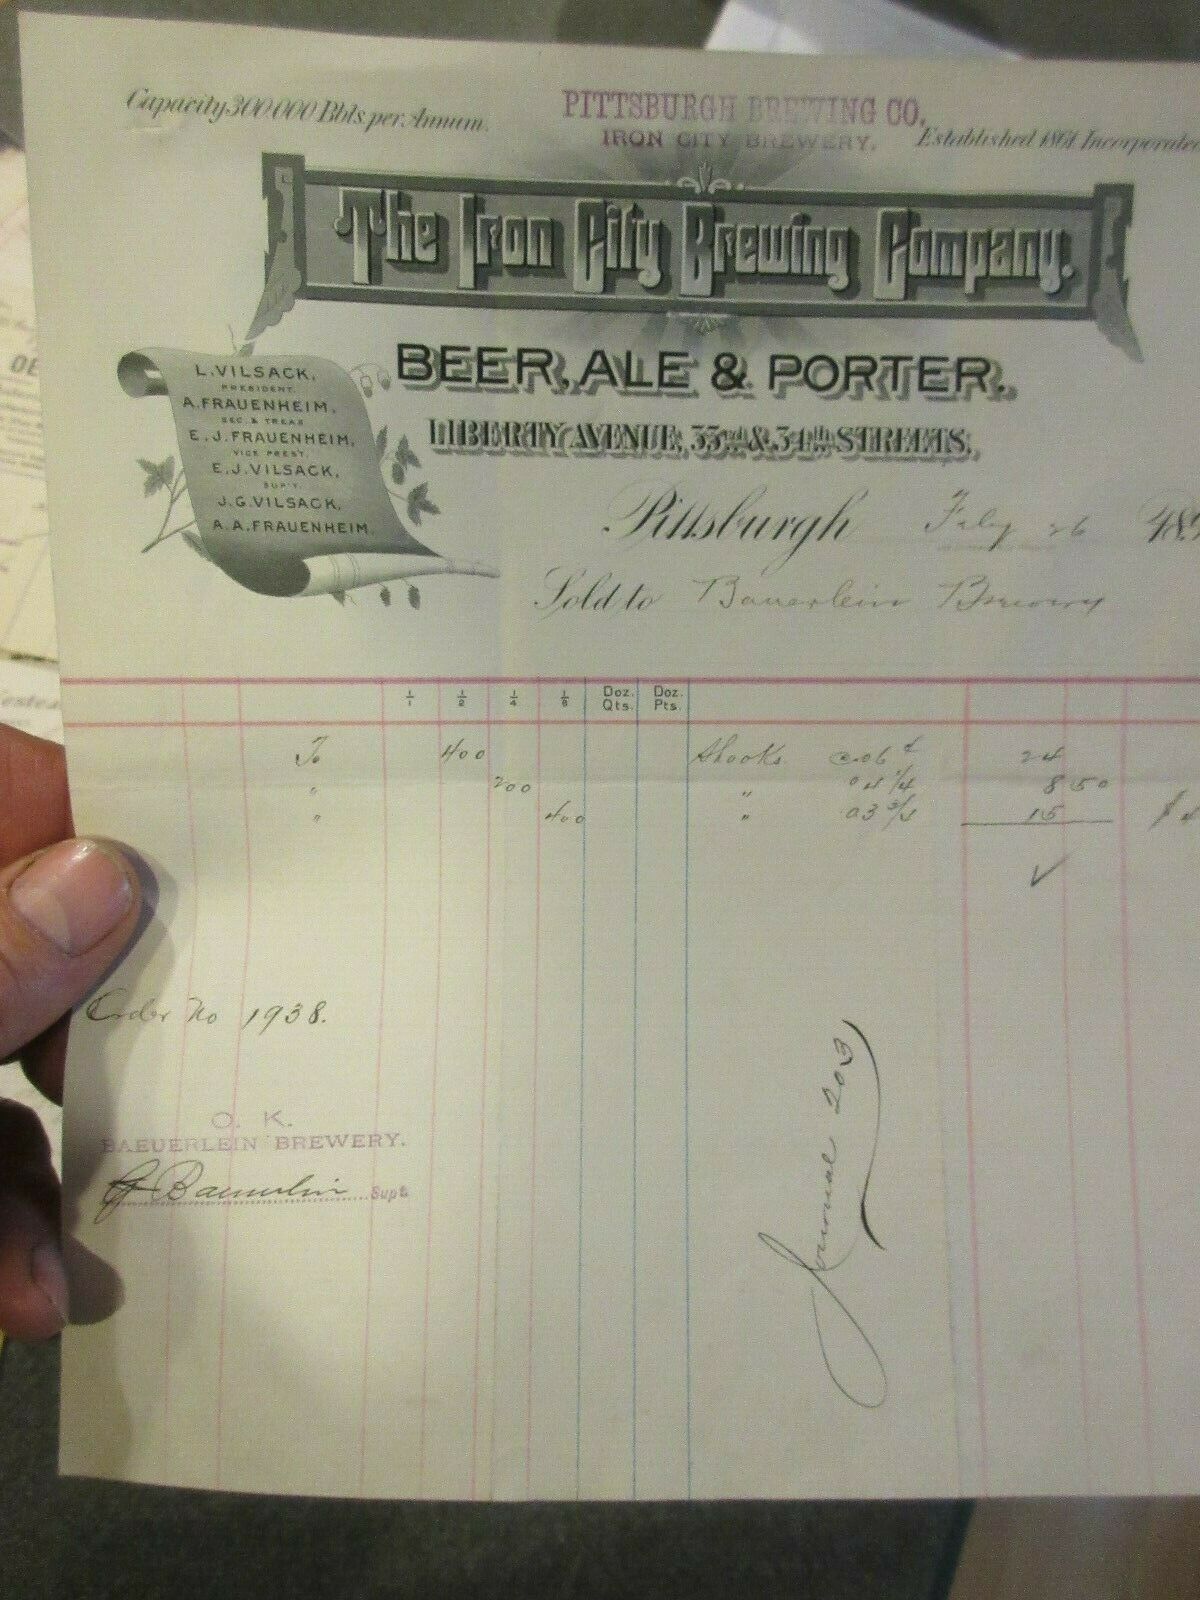 Capacity 300.000 Bbls. per. Annum.
PITTSBURGH BREWING CO.
IRON CITY BREWERY.
Established 1861. Incorporated
The Iron City Brewing Company.
BEER, ALE & PORTER.
LIBERTY AVENUE, 33rd & 34th STREETS.
L. VILSACK,
PRESIDENT.
A. FRAUENHEIM,
SEC. & TREAS
E. J. FRAUENHEIM,
VICE PREST.
E. J. VILSACK,
SUP'T.
J. G. VILSACK,
A. A. FRAUENHEIM.
Pittsburgh Feby 26 189
Sold to Bauerlein Brewery
1/1 1/2 1/4 1/8 Doz. Qts. Doz. Pts.
To 400 Shooks @ .06 ¢ 24
" 200 " 04 1/4 8 50
" 400 " 03 3/4 15 $ 4
✓
Order No 1938.
O. K.
BAEUERLEIN BREWERY.
Baeuerlein Supt
Journal 203